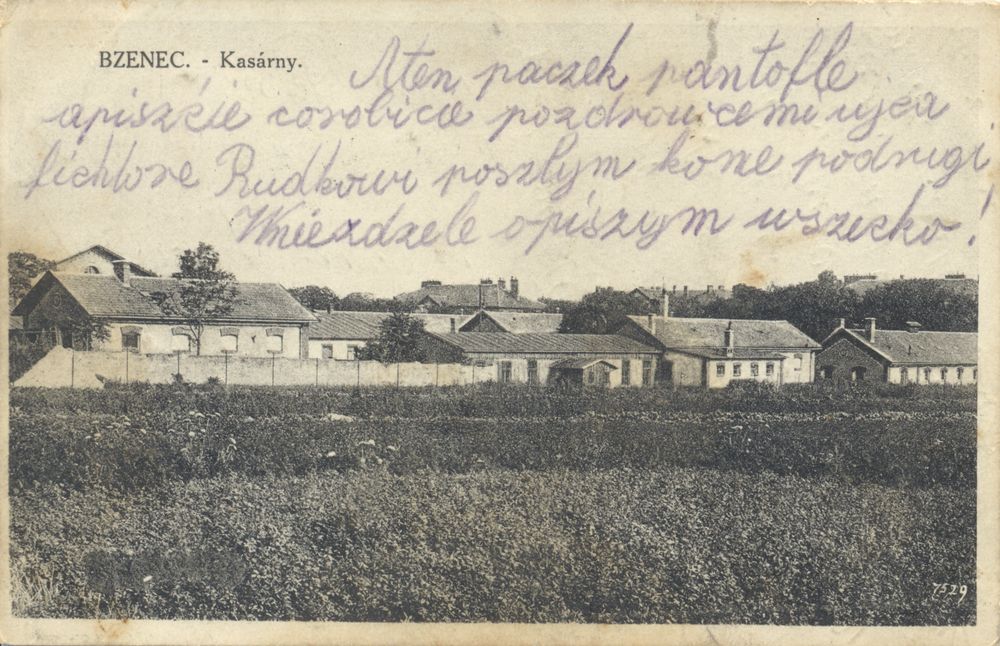 BZENEC. - Kasárny.
Aten paczek pantofle
apiszcie corobicie pozdrowcemi ujca
fichtore Rudkowi poszłym kone podrugi
Wniezdzele opiszym wszecko!
7529